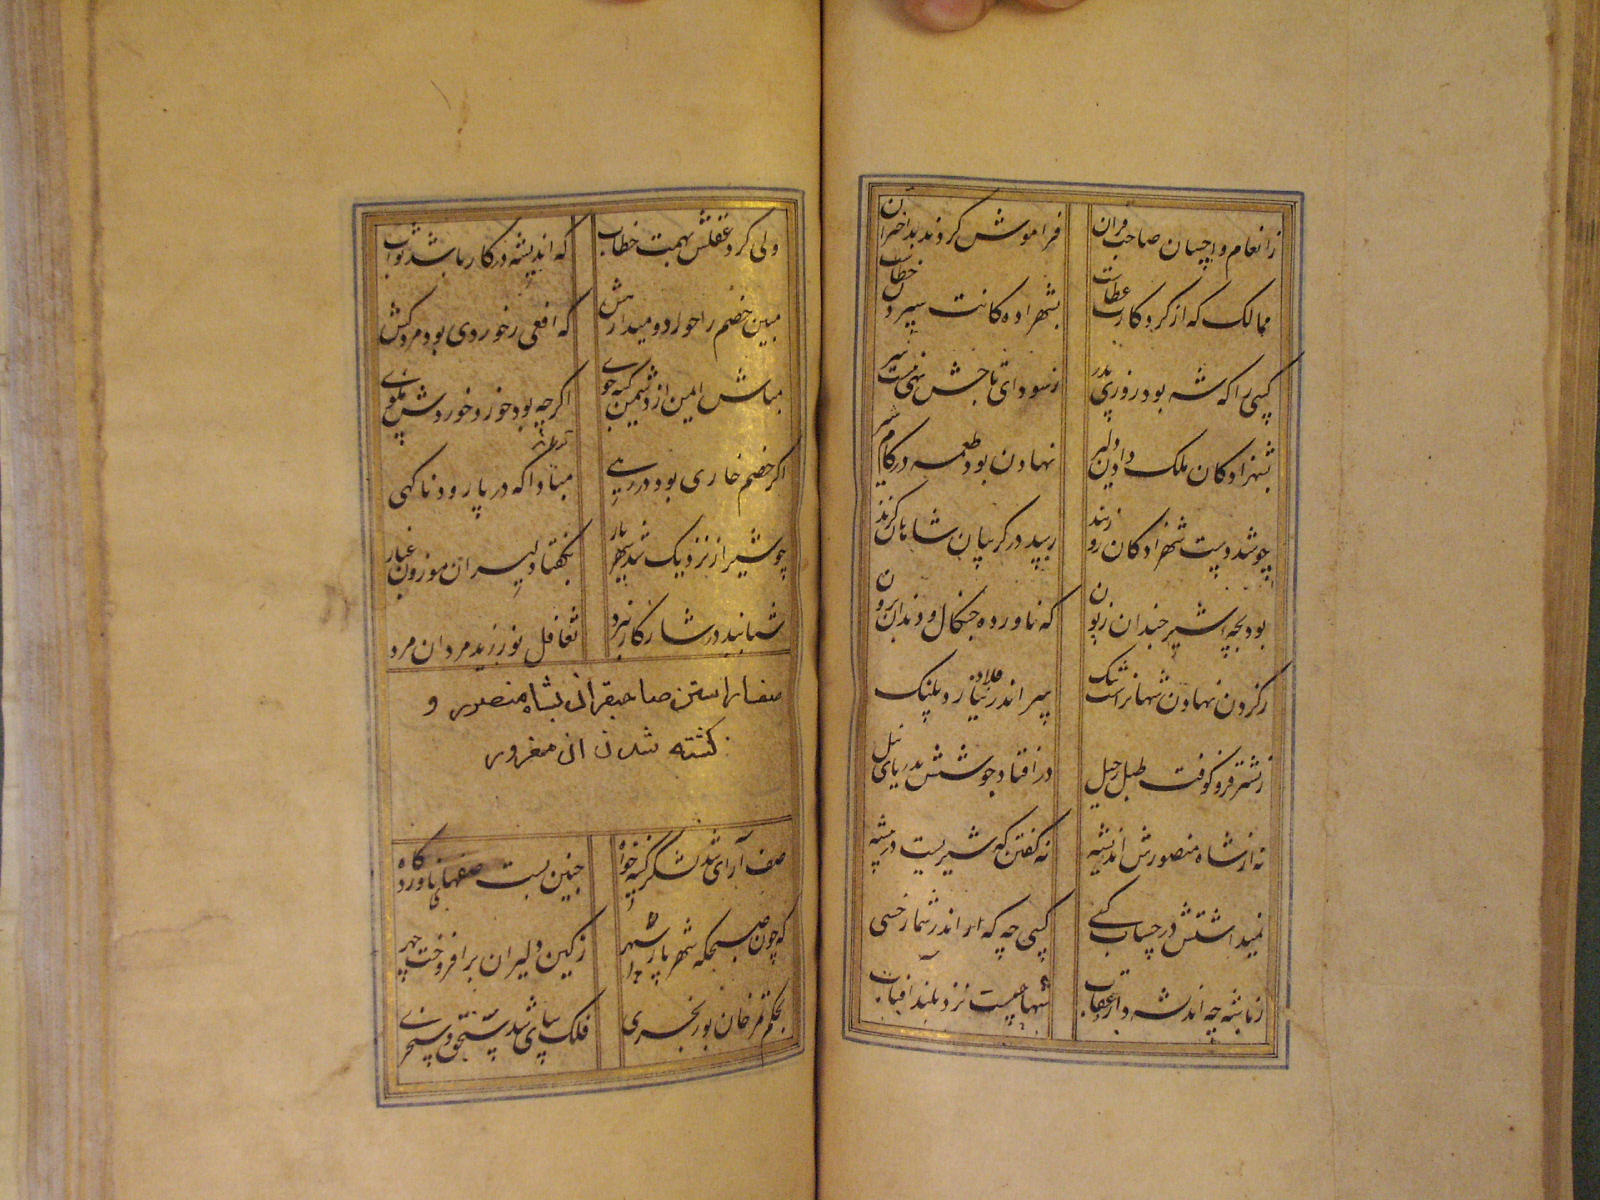 ز انعام و احسان صاحب قران فراموش کردند بد اختران
ممالک که از کردکار عطاست بشهزاده کانت سپردن خطاست
کسی را که شه بود روزی پدر ز سودای تاجش تهی نیست سر
بشهزادکان ملک دادن دلیر نهادن بود طعمه در کام شیر
چو شد دست شهزادکان زورمند رسد در کریبان شاهان کزند
بود بچه شیر چندان زبون که ناورده چنکال و دندان برون
ز کردن نهادن شهانراست ننک پسر اندر نیارد پلنک
ز شتر فرو کوفت طبل رحیل در افتاد جوشش بدریای نیل
نه از شاه منصورش اندیشه نه کفتن که شیریست در بیشه
نمیداشتش در حساب کسی کسی چه که از اندر شمار خسی
ز باشه چه اندیشه دارد عقاب سها چیست نزد بلند آفتاب
ولی کرد عقلش بهمت خطاب که اندیشه در کار باشد ثواب
مبین خصم را خوار و میدار هش که افعی ز خوردی بود مردکش
مباش ایمن از دشمن کینه جوی اکرچه بود خوار و خوردش
اکر خصم خاری بود در رهی مبادا که در پا رود ناکهی
چو شیراز نزدیک شد شهریار بکفتا دلیران موزون غبار
شمانید در شار کار نبرد تغافل نورزید مردان مرد
صف اراستن صاحبقرانی بشاه منصور و
کشته شدن ان مغرور
صف آرای شد لشکر کینه خواه چنین بست صفهای آوردکاه
که چون صبحکه شهریار سپهر ز کین دلیران بر افروخت چهر
بحکم تمر خان بوزنجری فلک سای شد سنجق و سنجری